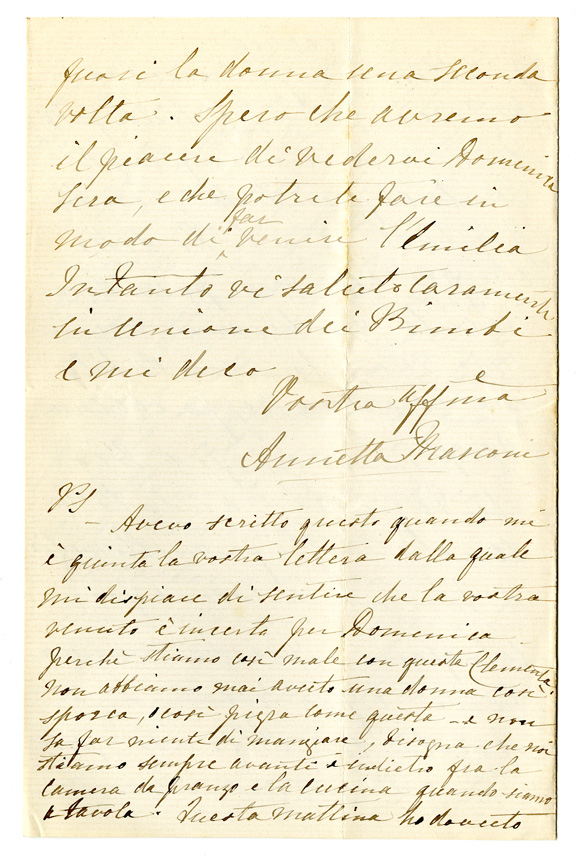 fuori la donna una seconda
volta. Spero che avremo
il piacere di vedervi Domenica
sera, e che potrete fare in
modo di far venire l'Emilia
Intanto vi saluto caramente
in unione dei Bimbi
e mi dico
Vostra affma
Annetta
PS
- Avevo scritto questo quando mi
è giunta la vostra lettera dalla quale
mi dispiace di sentire che la vostra
venuta è incerta per Domenica
perchè stiamo così male con questa Clementa
non abbiamo mai avuto una donna così
sporca, e così pigra come questa - e non
sa far niente di mangiare, bisogna che noi
stiamo sempre avanti e indietro fra la
camera da pranzo e la cucina quando siamo
a tavola. Questa mattina ho dovuto